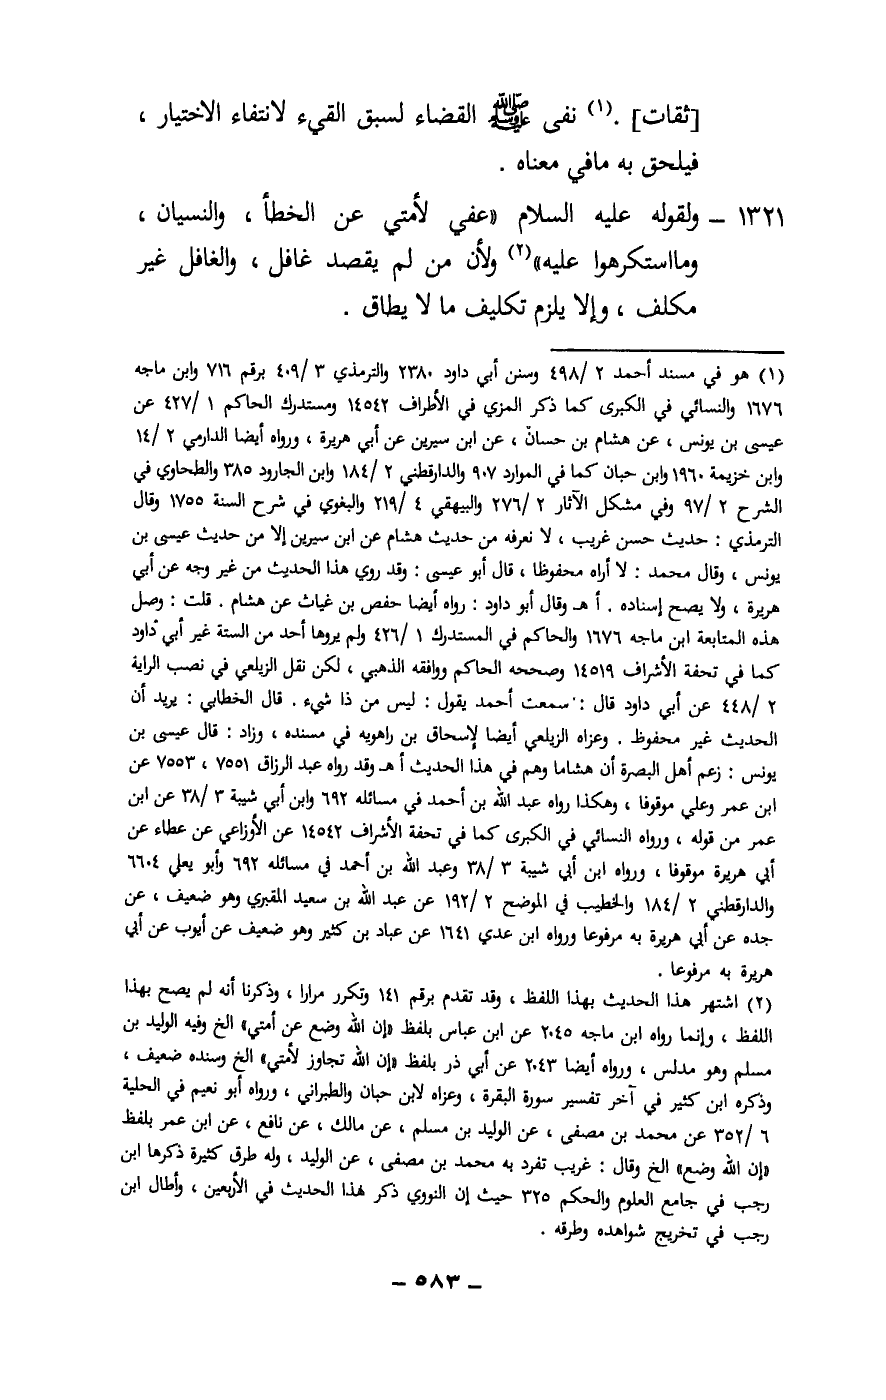 [ثقات] .(١) نفى ﷺ القضاء لسبق القيء لانتفاء الاختيار ،
فيلحق به مافي معناه .
١٣٢١ – ولقوله عليه السلام «عفي لأمتي عن الخطأ ، والنسيان ،
ومااستكرهوا عليه»(٢) ولأن من لم يقصد غافل ، والغافل غير
مكلف ، وإلا يلزم تكليف ما لا يطاق .
(١) هو في مسند أحمد ٢ /٤٩٨ وسنن أبي داود ٢٣٨٠ والترمذي ٣ /٤٠٩ برقم ٧١٦ وابن ماجه
١٦٧٦ والنسائي في الكبرى كما ذكر المزي في الأطراف ١٤٥٤٢ ومستدرك الحاكم ١ /٤٢٧ عن
عيسى بن يونس ، عن هشام بن حسان ، عن ابن سيرين عن أبي هريرة ، ورواه أيضا الدارمي ٢ /١٤
وابن خزيمة ١٩٦٠ وابن حبان كما في الموارد ٩٠٧ والدارقطني ٢ /١٨٤ وابن الجارود ٣٨٥ والطحاوي في
الشرح ٢ /٩٧ وفي مشكل الآثار ٢ /٢٧٦ والبيهقي ٤ /٢١٩ والبغوي في شرح السنة ١٧٥٥ وقال
الترمذي : حديث حسن غريب ، لا نعرفه من حديث هشام عن ابن سيرين إلا من حديث عيسى بن
يونس ، وقال محمد : لا أراه محفوظا ، قال أبو عيسى : وقد روي هذا الحديث من غير وجه عن أبي
هريرة ، ولا يصح إسناده . أ هـ وقال أبو داود : رواه أيضا حفص بن غياث عن هشام . قلت : وصل
هذه المتابعة ابن ماجه ١٦٧٦ والحاكم في المستدرك ١ /٤٢٦ ولم يروها أحد من الستة غير أبي داود
كما في تحفة الأشراف ١٤٥١٩ وصححه الحاكم ووافقه الذهبي ، لكن نقل الزيلعي في نصب الراية
٢ /٤٤٨ عن أبي داود قال : سمعت أحمد يقول : ليس من ذا شيء . قال الخطابي : يريد أن
الحديث غير محفوظ . وعزاه الزيلعي أيضا لإسحاق بن راهويه في مسنده ، وزاد : قال عيسى بن
يونس : زعم أهل البصرة أن هشاما وهم في هذا الحديث أ هـ وقد رواه عبد الرزاق ٧٥٥١ ، ٧٥٥٣ عن
ابن عمر وعلي موقوفا ، وهكذا رواه عبد الله بن أحمد في مسائله ٦٩٢ وابن أبي شيبة ٣ /٣٨ عن ابن
عمر من قوله ، ورواه النسائي في الكبرى كما في تحفة الأشراف ١٤٥٤٢ عن الأوزاعي عن عطاء عن
أبي هريرة موقوفا ، ورواه ابن أبي شيبة ٣ /٣٨ وعبد الله بن أحمد في مسائله ٦٩٢ وأبو يعلي ٦٦٠٤
والدارقطني ٢ /١٨٤ والخطيب في الموضح ٢ /١٩٢ عن عبد الله بن سعيد المقبري وهو ضعيف ، عن
جده عن أبي هريرة به مرفوعا ورواه ابن عدي ١٦٤١ عن عباد بن كثير وهو ضعيف عن أيوب عن أبي
هريرة به مرفوعا .
(٢) اشتهر هذا الحديث بهذا اللفظ ، وقد تقدم برقم ١٤١ وتكرر مرارا ، وذكرنا أنه لم يصح بهذا
اللفظ ، وإنما رواه ابن ماجه ٢٠٤٥ عن ابن عباس بلفظ «إن الله وضع عن أمتي» الخ وفيه الوليد بن
مسلم وهو مدلس ، ورواه أيضا ٢٠٤٣ عن أبي ذر بلفظ «إن الله تجاوز لأمتي» الخ وسنده ضعيف ،
وذكره ابن كثير في آخر تفسير سورة البقرة ، وعزاه لابن حبان والطبراني ، ورواه أبو نعيم في الحلية
٦ /٣٥٢ عن محمد بن مصفى ، عن الوليد بن مسلم ، عن مالك ، عن نافع ، عن ابن عمر بلفظ
«إن الله وضع» الخ وقال : غريب تفرد به محمد بن مصفى ، عن الوليد ، وله طرق كثيرة ذكرها ابن
رجب في جامع العلوم والحكم ٣٢٥ حيث إن النووي ذكر هذا الحديث في الأربعين ، وأطال ابن
رجب في تخريج شواهده وطرقه .
– ٥٨٣ –